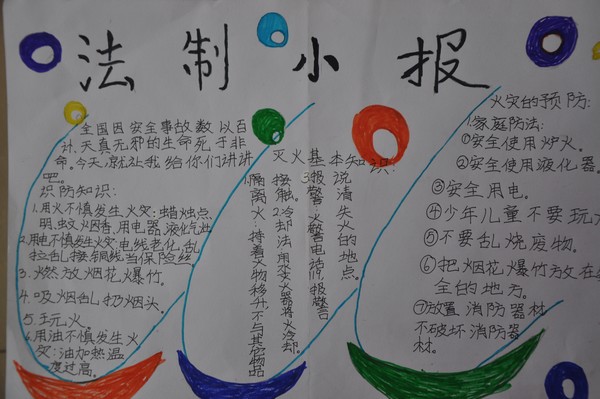 法制小报
全国因安全事故数以百
计,天真无邪的生命死于非
命。今天,就让我给你们讲讲
吧。
识防知识:
1.用火不慎发生火灾:蜡烛点
明,蚊火烟香,用电器液化气灶
2.用电不慎发生火灾:电线老化,乱
拉乱接,铜线当保险丝。
3.燃放烟花爆竹。
4.吸烟乱扔烟头。
5.玩火。
6.用油不慎发生火
灾:油加热温
度过高。
灭火基本知识:
1.隔离火,持着火物移开,不与其它物品
接触。2.冷却法:用灭火器将火冷却。
3.报警:火警电话119,报警
说清失火的地点。
火灾的预防:
1.家庭防法:
①安全使用炉火。
②安全使用液化器。
③安全用电。
④少年儿童不要玩火
⑤不要乱烧废物。
⑥把烟花爆竹放在
全的地方。
⑦放置消防器材
不破坏消防器
材。